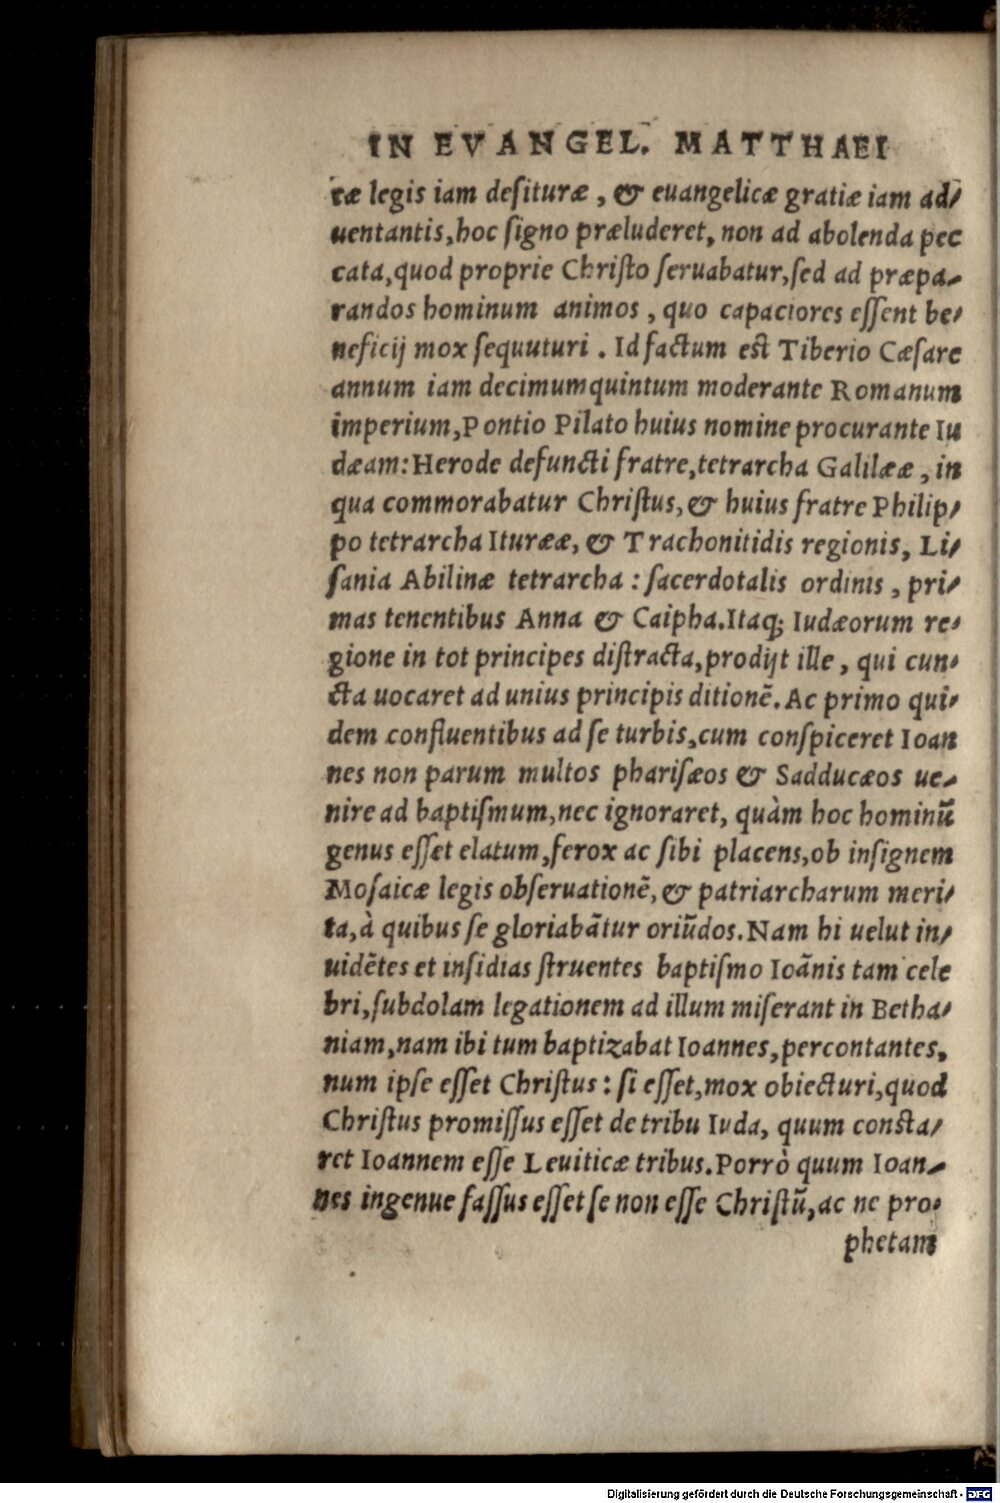 IN EVANGEL. MATTHAEI
ræ legis iam desituræ, & euangelicæ gratiæ iam ad-
uentantis, hoc signo præluderet, non ad abolenda pec
cata, quod proprie Christo seruabatur, sed ad præpa-
randos hominum animos, quo capaciores essent be-
neficij mox sequuturi. Id factum est Tiberio Cæsare
annum iam decimumquintum moderante Romanum
imperium, Pontio Pilato huius nomine procurante Iu
dæam: Herode defuncti fratre, tetrarcha Galilææ, in
qua commorabatur Christus, & huius fratre Philip-
po tetrarcha Iturææ, & Trachonitidis regionis, Li-
sania Abilinæ tetrarcha: sacerdotalis ordinis, pri-
mas tenentibus Anna & Caipha. Itaq; Iudæorum re-
gione in tot principes distracta, prodijt ille, qui cun-
cta uocaret ad unius principis ditionẽ. Ac primo qui-
dem confluentibus ad se turbis, cum conspiceret Ioan
nes non parum multos pharisæos & Sadducæos ue-
nire ad baptismum, nec ignoraret, quàm hoc hominũ
genus esset elatum, ferox ac sibi placens, ob insignem
Mosaicæ legis obseruationẽ, & patriarcharum meri-
ta, à quibus se gloriabãtur oriũdos. Nam hi uelut in-
uidẽtes et insidias struentes baptismo Ioãnis tam cele
bri, subdolam legationem ad illum miserant in Betha-
niam, nam ibi tum baptizabat Ioannes, percontantes,
num ipse esset Christus: si esset, mox obiecturi, quod
Christus promissus esset de tribu Iuda, quum consta-
ret Ioannem esse Leuiticæ tribus. Porrò quum Ioan-
nes ingenue fassus esset se non esse Christũ, ac ne pro-
phetam
Digitalisierung gefördert durch die Deutsche Forschungsgemeinschaft - DFG